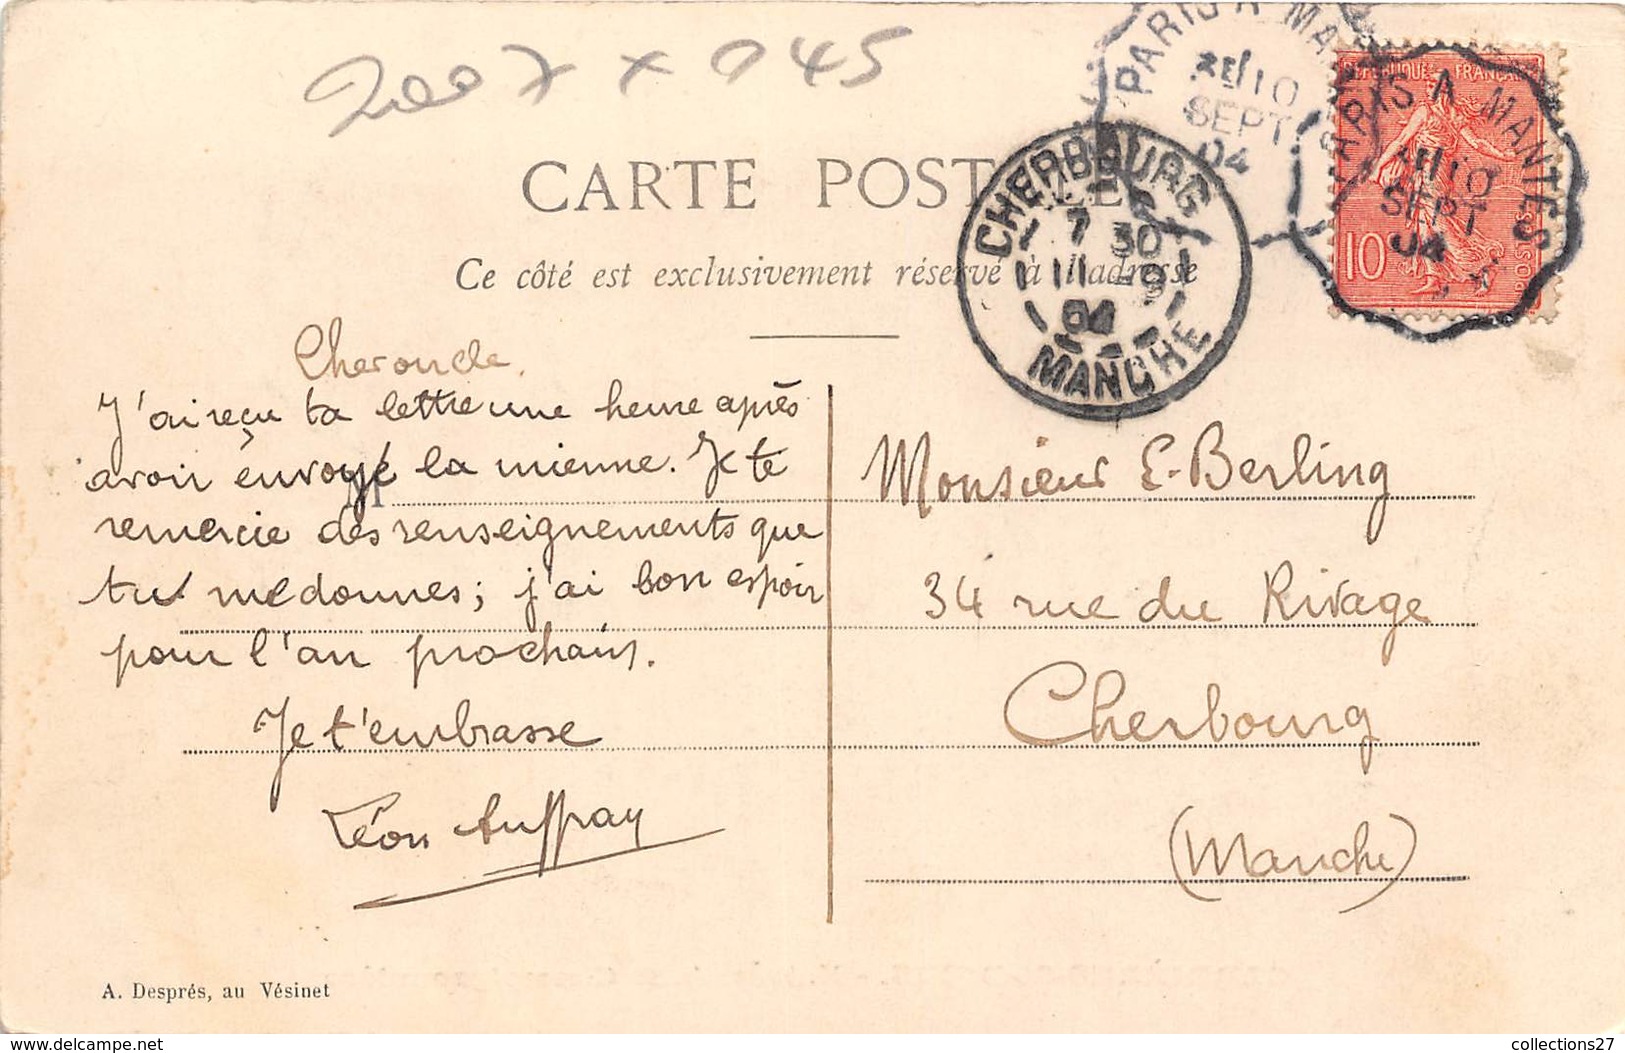 2007 x 945
PARIS A MA
2E/10
SEPT
04
CARTE POSTALE
Ce côté est exclusivement réservé à l'adresse
CHERBOURG
7 30
11 - 9
04
MANCHE
REPUBLIQUE FRANÇAISE
10
POSTES
PARIS A MANTES
10
SEPT
04
J'ai reçu ta lettre une heure après
avoir envoyé la mienne. Je te
remercie des renseignements que
tu me donnes; j'ai bon espoir
pour l'an prochain.
Je t'embrasse
Léon Auffray
Monsieur E. Berling
34 rue du Rivage
Cherbourg
(Manche)
A. Després, au Vésinet
collections27